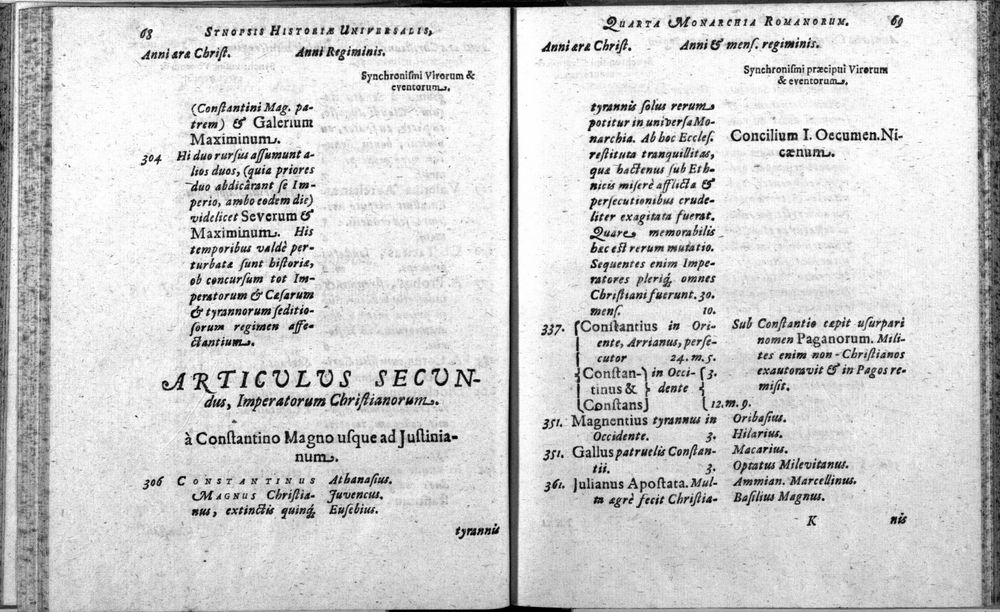 68 SYNOPSIS HISTORIÆ UNIVERSALIS,
Anni æræ Christ. Anni Regiminis.
Synchronismi Virorum &
eventorum.
(Constantini Mag. pa-
trem) & Galerium
Maximinum.
304 Hi duo rursus assumunt a-
lios duos, (quia priores
duo abdicârant se Im-
perio, ambo eodem die)
videlicet Severum &
Maximinum. His
temporibus valdè per-
turbatæ sunt historiæ,
ob concursum tot Im-
peratorum & Cæsarum
& tyrannorum seditio-
sorum regimen affe-
ctantium.
ARTICULUS SECUN-
dus, Imperatorum Christianorum.
à Constantino Magno usque ad Justinia-
num.
306 CONSTANTINUS Athanasius.
MAGNUS Christia- Juvencus.
nus, extinctis quinq; Eusebius.
tyrannis
QUARTA MONARCHIA ROMANORUM. 69
Anni æræ Christ. Anni & mens. regiminis.
Synchronismi præcipui Virorum
& eventorum.
tyrannis solus rerum
potitur in universa Mo-
narchia. Ab hoc Eccles.
restituta tranquillitas,
quæ hactenus sub Eth-
nicis miserè afflicta &
persecutionibus crude-
liter exagitata fuerat.
Quare memorabilis
hæc est rerum mutatio.
Sequentes enim Impe-
ratores pleriq; omnes
Christiani fuerunt. 30.
mens. 10.
Concilium I. Oecumen. Ni-
cænum.
337. Constantius in Ori-
ente, Arrianus, perse-
cutor 24. m. 5.
Constan- in Occi- 3.
tinus & dente
Constans 12. m. 9.
Sub Constantio cæpit usurpari
nomen Paganorum. Mili-
tes enim non-Christianos
exautoravit & in Pagos re-
misit.
351. Magnentius tyrannus in Oribasius.
Occidente. 3. Hilarius.
351. Gallus patruelis Constan- Macarius.
tii. 3. Optatus Milevitanus.
361. Julianus Apostata. Mul- Ammian. Marcellinus.
ta ægrè fecit Christia- Basilius Magnus.
K nis